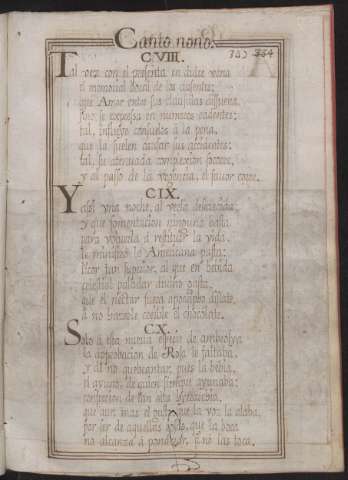 Canto nono.
383 384
CVIII.
Tal vez con el presenta en dulce vena
el memorial vocal de los ausentes;
que Amor entre sus clausulas
sino se expressa en numeros cadentes:
tal, influye consuelos a la pena,
que la suelen causar sus accidentes:
tal, su atenuada complexion socorre,
y al passo de la vrgencia, el favor corre.
CIX.
Y assi vna noche, al verla
y que fomentacion ninguna basta
para volverla, a restituir la vida,
le ministrò la Americana pasta:
licor tan superior, al que en bebida
celestial paladar divino gasta,
que el nectar fuera aposapho
à no hazerle cosible el chocolate.
CX.
Solo à esta nueva especie de ambrosya
la aprobacion de Rosa le faltaba,
y al no quebrantar, pues la bebia,
el ayuno, de quien siempre ayunaba:
confeccion de tan alta
que aun mas el gusto, que la voz la alaba,
por ser de aquellas cosas, que la boca
no alcanza à ponderar, si no las toca.